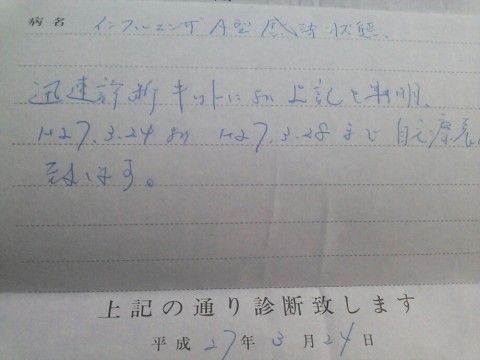 病名 インフルエンザA型感染状態
迅速診断キットにより上記と判明。
H27.3.24より H27.3.28まで自宅療養
上記の通り診断致します
平成27年3月24日